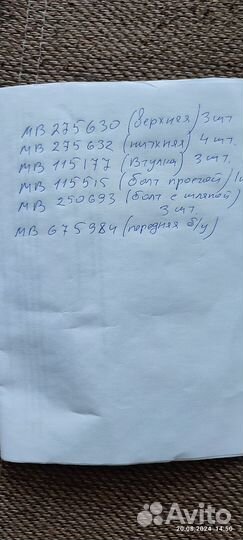 МВ 275630 (верхняя) 3 шт
МВ 275632 (нижняя) 4 шт.
МВ 115177 (втулка) 3 шт.
МВ 115515 (болт простой)
МВ 250693 (болт с шляпой)
3 шт.
МВ 675984 (передняя б/у)
20.08.2024 14:50
Avito